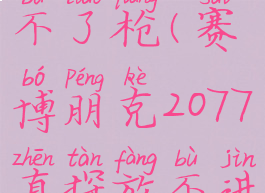 不了枪(赛
bó Péng kè
博朋克2077
zhēn tàn fàng bù jìn
真探放不进